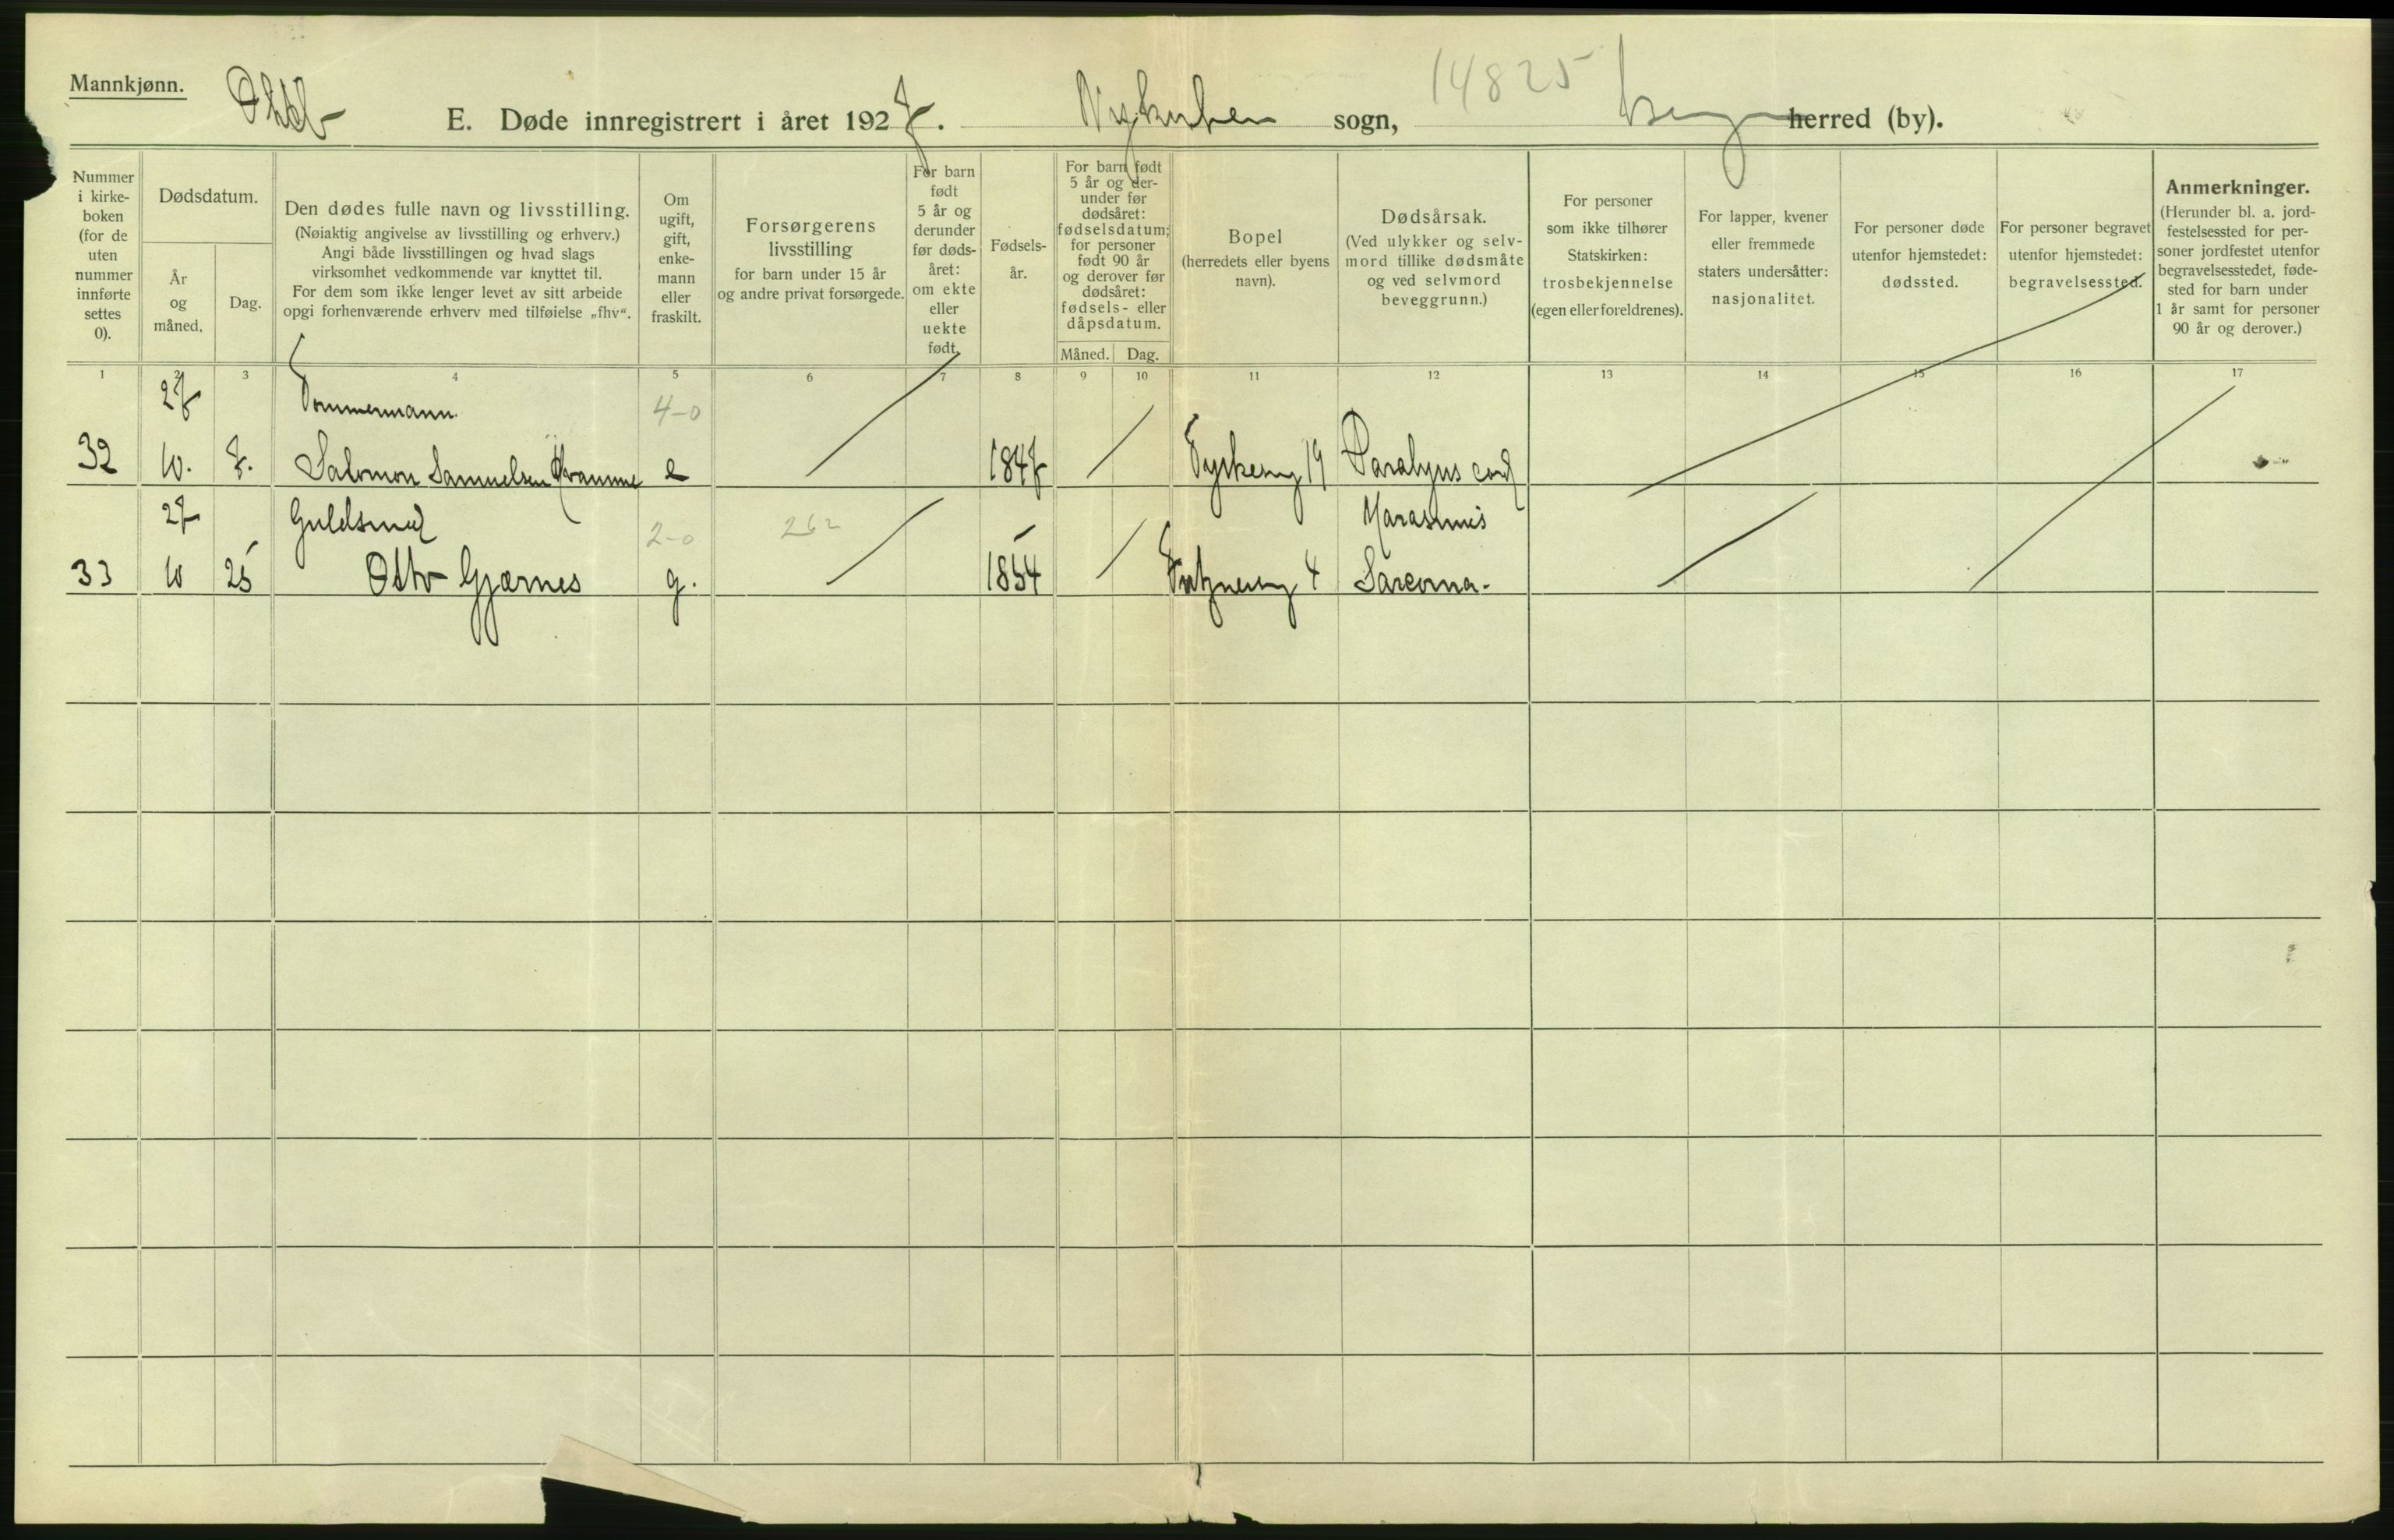 Mannkjønn.
Okbr
E. Døde innregistrert i året 1927. Nykirken sogn, Bergen herred (by).
14825
Nummer i kirkeboken (for de uten nummer innførte settes 0).
Dødsdatum.
År og måned.
Dag.
Den dødes fulle navn og livsstilling.
(Nøiaktig angivelse av livsstilling og erhverv.)
Angi både livsstillingen og hvad slags
virksomhet vedkommende var knyttet til.
For dem som ikke lenger levet av sitt arbeide
opgi forhenværende erhverv med tilføielse „fhv“.
Om ugift, gift, enkemann eller fraskilt.
Forsørgerens livsstilling
for barn under 15 år
og andre privat forsørgede.
For barn født 5 år og derunder før dødsåret: om ekte eller uekte født.
Fødselsår.
For barn født 5 år og derunder før dødsåret: fødselsdatum; for personer født 90 år og derover før dødsåret: fødsels- eller dåpsdatum.
Måned. Dag.
Bopel
(herredets eller byens navn).
Dødsårsak.
(Ved ulykker og selvmord tillike dødsmåte og ved selvmord beveggrunn.)
For personer som ikke tilhører Statskirken: trosbekjennelse (egen eller foreldrenes).
For lapper, kvener eller fremmede staters undersåtter: nasjonalitet.
For personer døde utenfor hjemstedet: dødssted.
For personer begravet utenfor hjemstedet: begravelsessted.
Anmerkninger.
(Herunder bl. a. jordfestelsessted for personer jordfestet utenfor begravelsesstedet, fødested for barn under 1 år samt for personer 90 år og derover.)
1 2 3 4 5 6 7 8 9 10 11 12 13 14 15 16 17
27 Tømmermann 4-0
32 10. 7. Salomon Samuelsen Kvamme e 1847 Tyskeveg 19 Paralysis cord
27 Guldsmed 2-0 262 Marasmus
33 10 25 Otto Gjærnes g. 1854 4 Sarcoma.